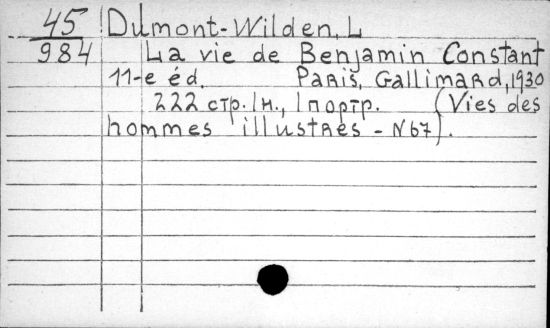 45 Dumont-Wilden, L
984 La vie de Benjamin Constant
11-e éd. Paris, Gallimard, 1930
222 стр. 1н., 1 портр. (Vies des
hommes illustres - N 67).